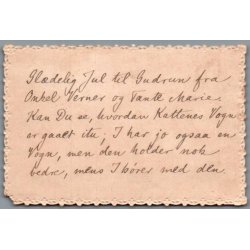 Glædelig Jul til Gudrun fra
Onkel Verner og Tante Marie.
Kan Du se, hvordan Kattenes Vogn
er gaaet itu; I har jo ogsaa en
Vogn, men den holder nok
bedre, mens I kører med den.